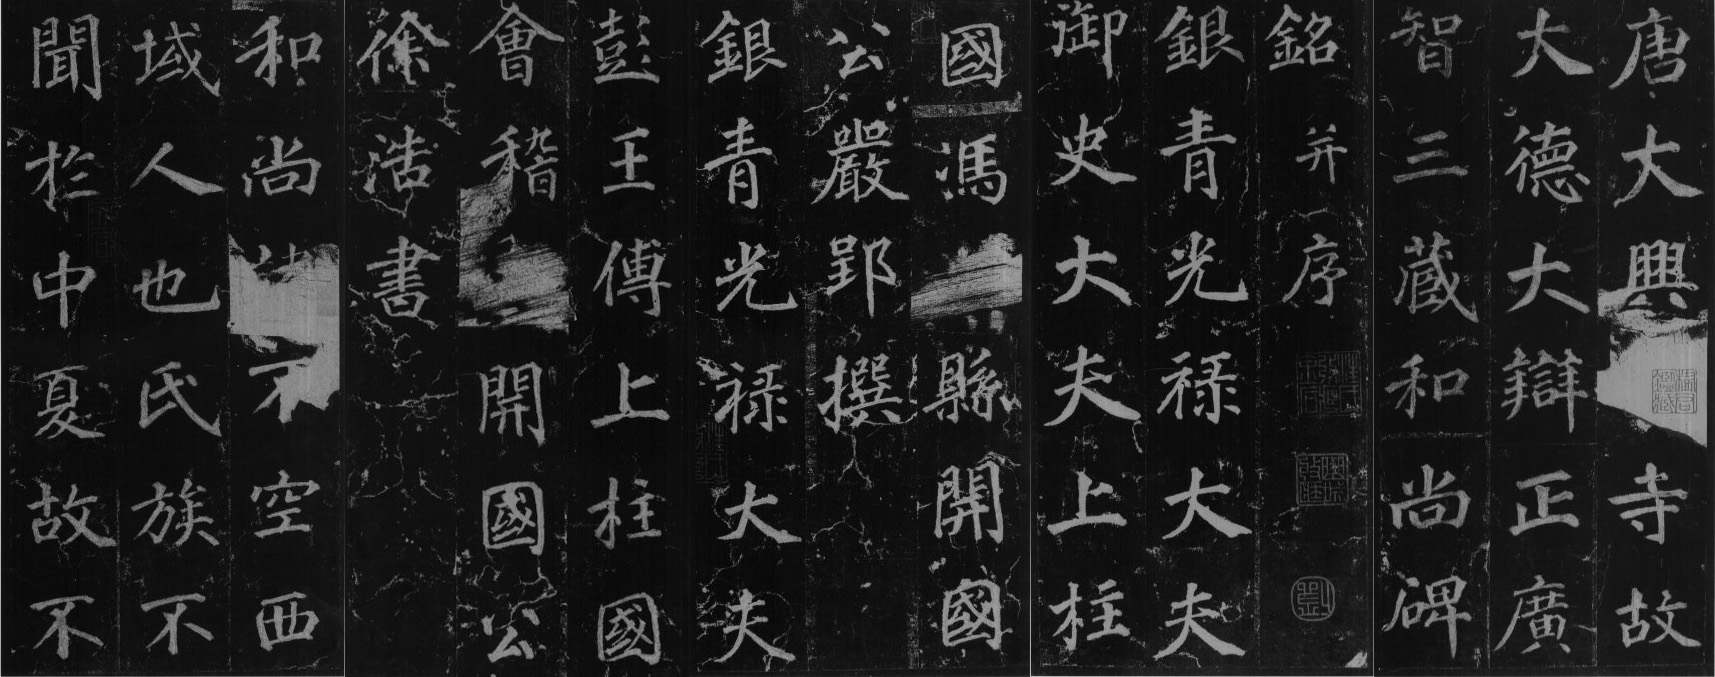 唐大興寺故
大德大辯正廣
智三藏和尚碑
銘并序
銀青光禄大夫
御史大夫上柱
國馮縣開國
公嚴郢撰
銀青光禄大夫
彭王傅上柱國
會稽開國公
徐浩書
和尚不空西
域人也氏族不
聞於中夏故不